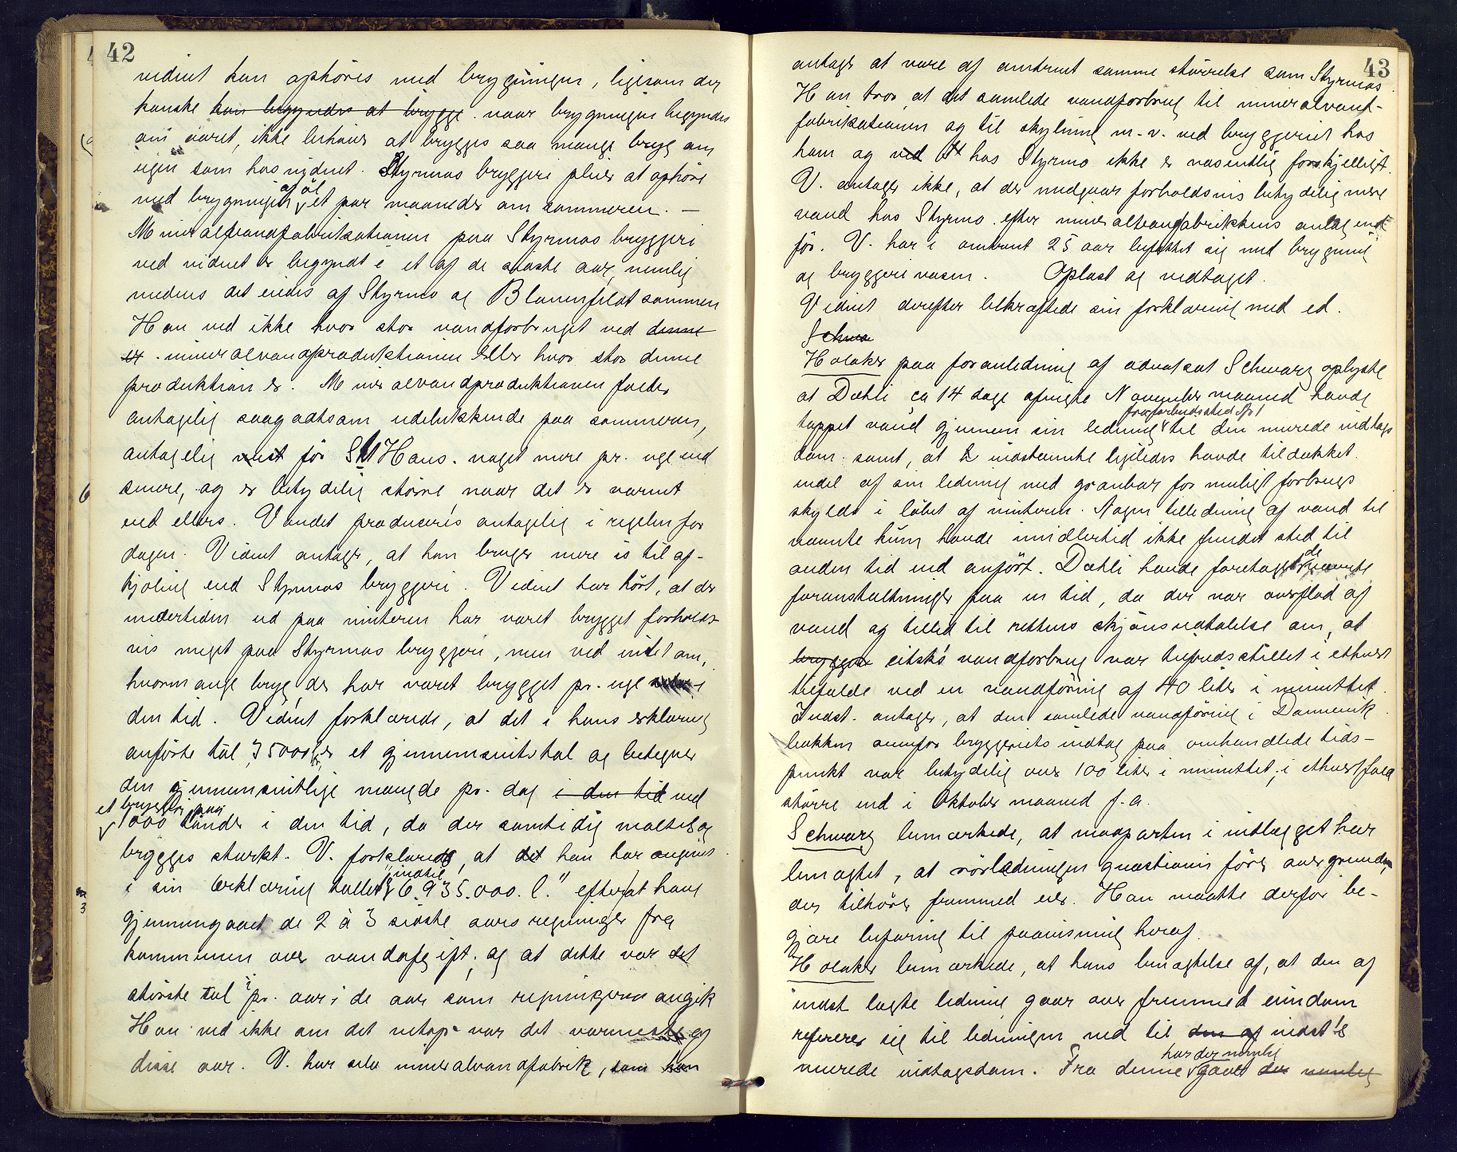 42
vidnet kan ophøres med brygningen, ligesom der
kanske han begynder at brygge naar brygningen begyndes
om aaret, ikke behøver at brygges saa mange bryg om
ugen som hos vidnet. Styrmos bryggeri pleier at ophøre
med brygningen af øl et par maaneder om sommeren. —
Mineralvandfabrikationen paa Styrmos bryggeri
ved vidnet er begyndt i et af de sidste aar, nemlig
medens det eiedes af Styrmo og Blumenfeldt sammen
Han ved ikke hvor stor vandforbruget ved denne
er mineralvandproduktionen eller hvor stor denne
produktion er. Mineralvandproduktionen falder
antagelig saagodtsom udelukkende paa sommeren,
antagelig mest før St Hans. noget mere pr. uge end
senere, og er betydelig større naar det er varmt
end ellers. Vandet produceres antagelig i regelen for
dagen. Vidnet antager, at han bruger mere is til af-
kjøling end Styrmos bryggeri. Vidnet har hørt, at der
undertiden ud paa vinteren har været brygget forholds-
vis meget paa Styrmos bryggeri, men ved intet om,
hvormange bryg der har været brygget pr. uge i
den tid. Vidnet forklarede, at det i hans erklæring
anførte tal, 35000 er et gjennemsnitstal og betegner
den gjennemsnitlige mængde pr. dag i den tid ved
et bryggeri paa
1000 tønder i den tid, da der samtidig maltes og
brygges sterkt. V. forklarede, at det han har angivet
i sin erklæring tallet "indtil 6.935.000 l." efterat have
m 3
gjennemgaaet de 2 à 3 sidste aars regninger fra
kommunen over vandafgift, og at dette var det
største tal pr. aar i de aar som regningerne angik
Han ved ikke om det netop var det varmeste af
disse aar. V. har selv mineralvandfabrik, som han
43
antages at være af omtrent samme størrelse som Styrmos.
Han tror, at det samlede vandforbrug til mineralvand-
fabrikationen og til skylning m.v. ved bryggeriet hos
ham og ved hos Styrmo ikke er væsentlig forskjelligt.
V. antager ikke, at der medgaar forholdsvis betydelig mere
vand hos Styrmo efter mineralvandfabrikkens anlæg end
før. V. har i omtrent 25 aar befattet sig med brygning
og bryggerivæsen. Oplæst og vedtaget.
Vidnet derefter bekræftede sin forklaring med ed.
Schwa
Holaker paa foranledning af advokat Schwarz oplyste
at Dæhli ca 14 dage af November maaned havde
tappet vand gjennem sin ledning fra forbudssted No 1 til den murede indtags
dam samt, at indstevnte ligeledes havde tildækket
endel af sin ledning med granbar for muligt forbrugs
skyld i løbet af vinteren. Nogen tilledning af vand til
nævnte kum havde imidlertid ikke fundet sted til
anden tid end anført. Dæhli havde foretaget de nævnte
foranstaltninger paa en tid, da der var overflod af
vand og tillid til rettens skjønsudtalelse om, at
bryggeri citsk's vandforbrug var tilfredsstillet i ethvert
tilfælde ved en vandføring af 40 liter i minuttet.
Indst. antager, at den samlede vandføring i Dammerik
bækken ovenfor bryggeriets indtag paa omhandlede tids-
punkt var betydelig over 100 liter i minuttet, i ethvert fald
større end i Oktober maaned f.a.
Schwarz bemærkede, at modparten i indlægget har
benægtet, at rørledningen quæstionis fører over grund,
der tilhører fremmed eier. Han maatte derfor be-
gjære befaring til paavisning heraf.
Holaker bemærkede, at hans benægtelse af, at den af
indst lagte ledning gaar over fremmed eiendom
referer sig til ledningen ned til den af indst's
murede indtagsdam. Fra denne har der nemlig gaaet der nemlig